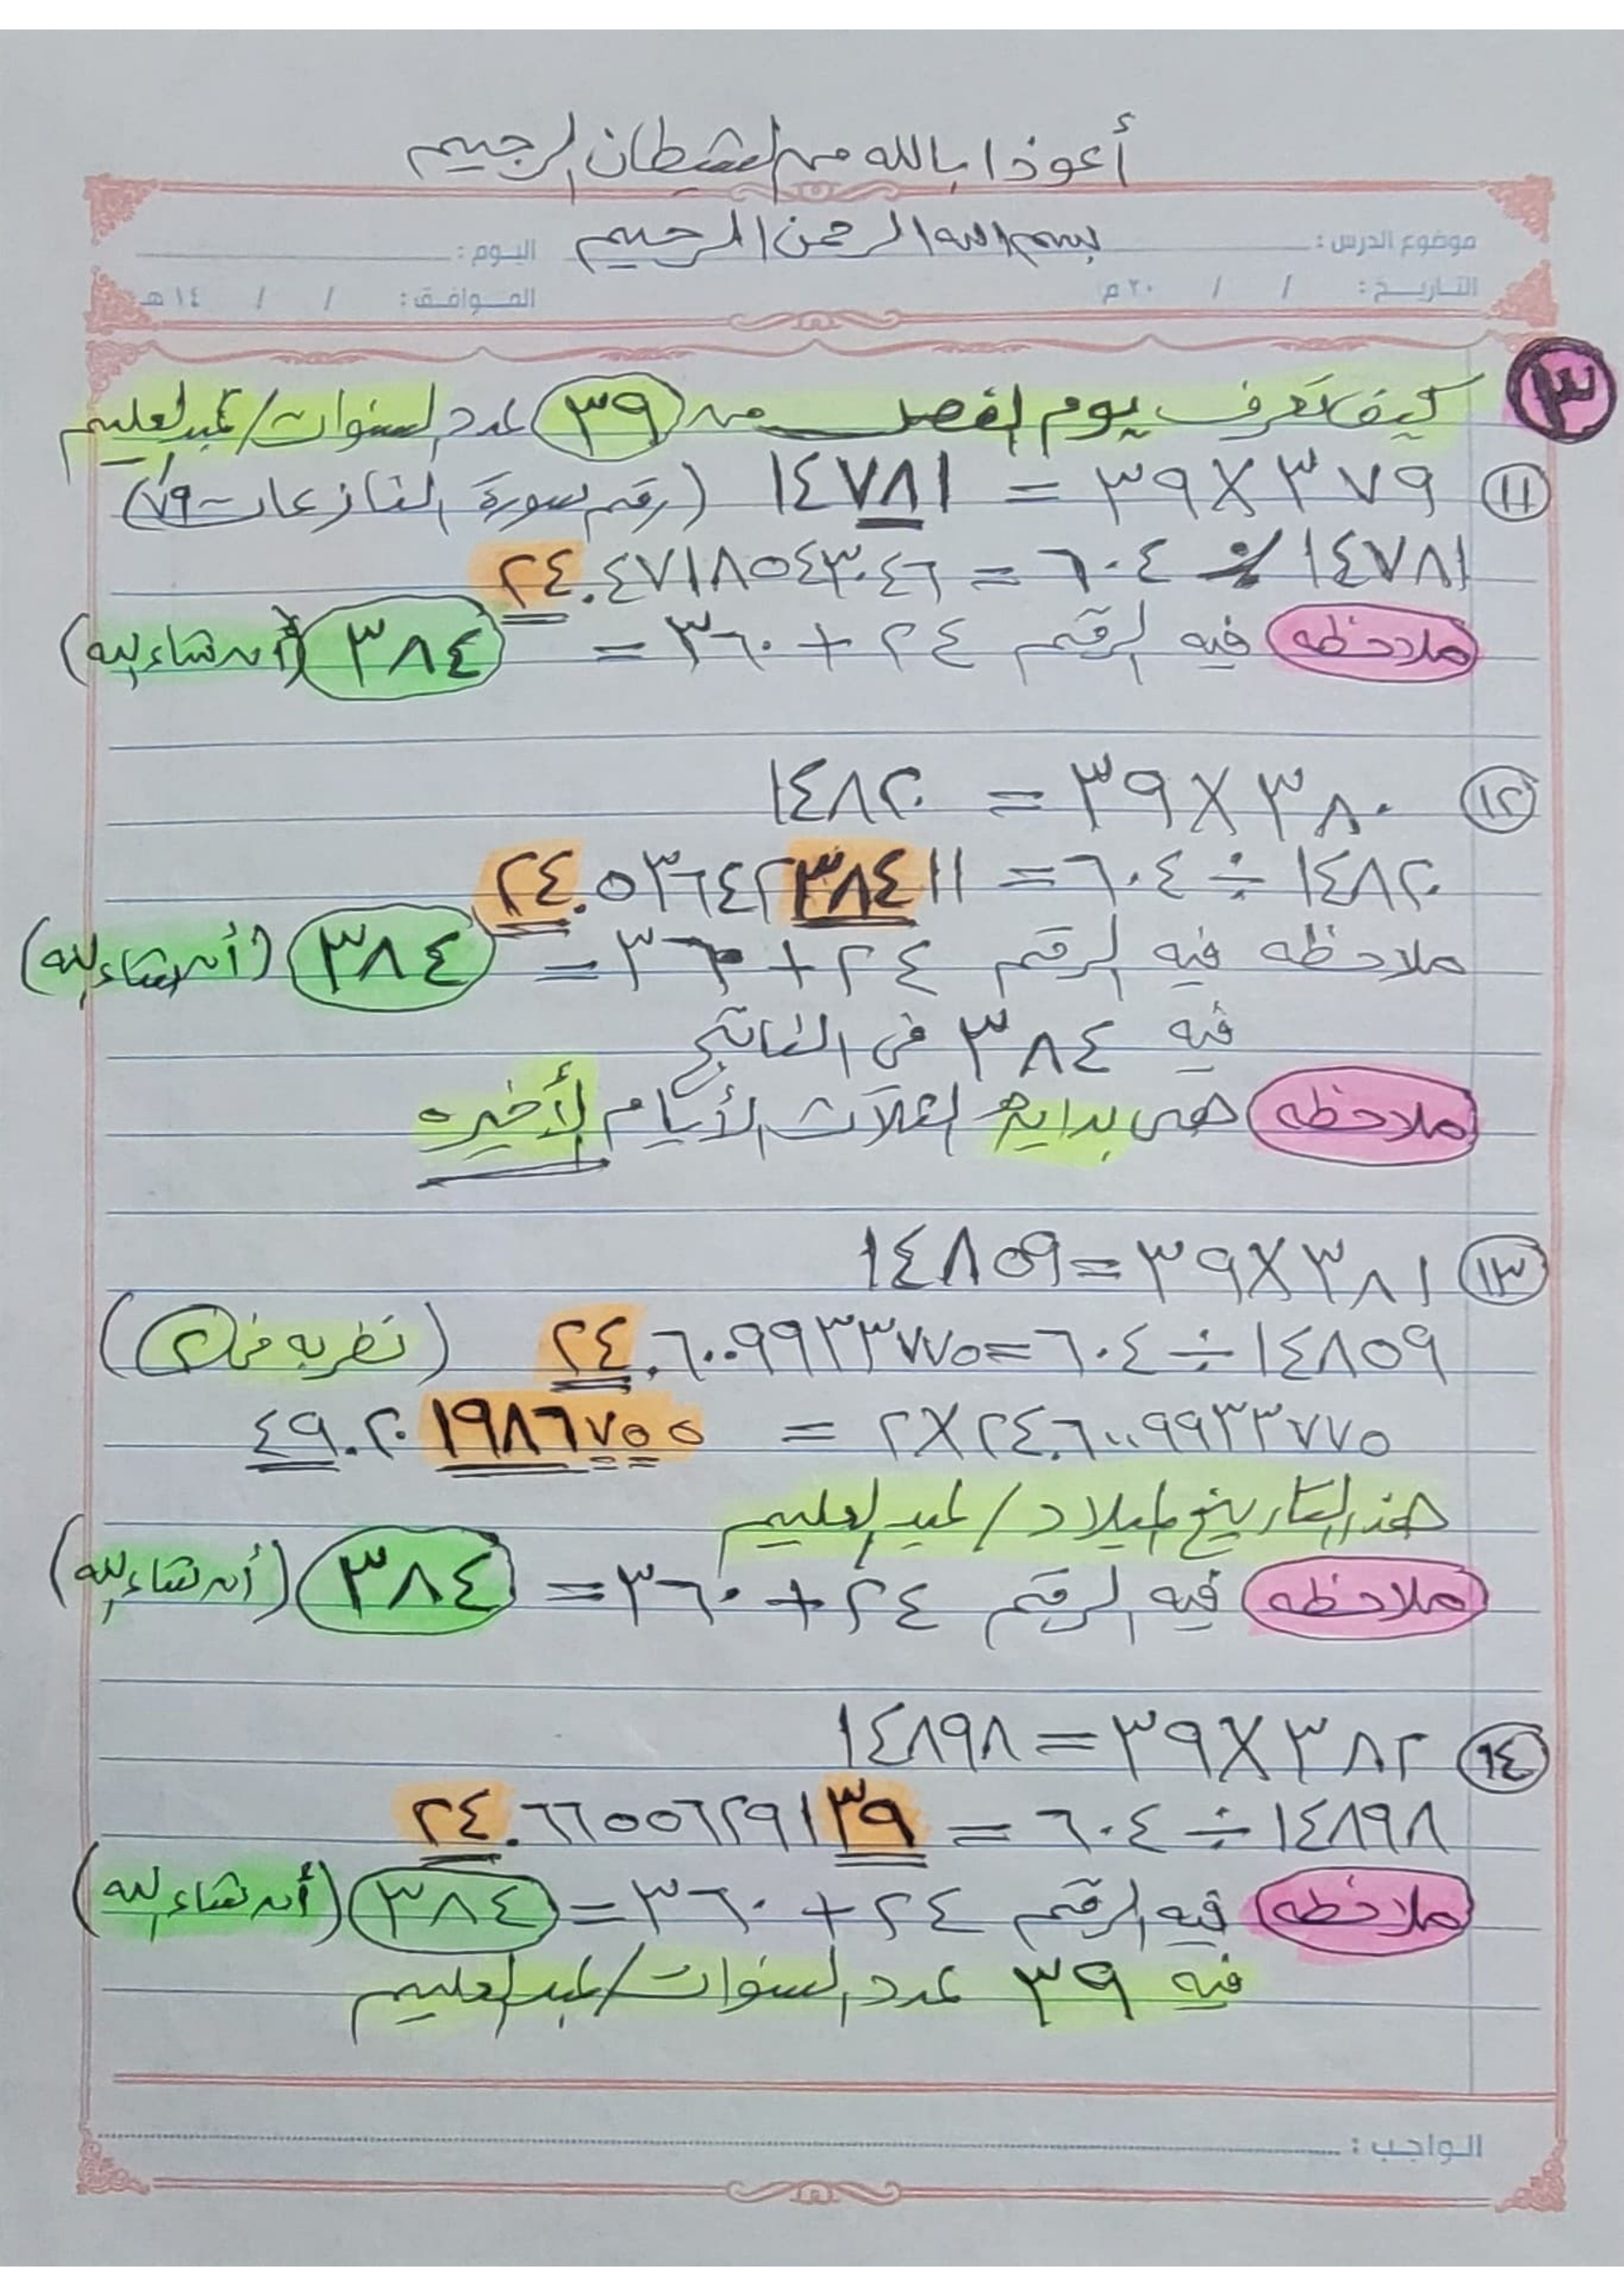 أعوذ بالله من الشيطان الرجيم
بسم الله الرحمن الرحيم
موضوع الدرس : اليوم :
التاريخ : / / ٢٠م الموافق : / / ١٤هـ
٣ كيف تعرف يوم الفصل من ٣٩ عدد السنوات/عبدالعليم
١١ ٣٧٩ × ٣٩ = ١٤٧٨١ (رقم سورة النازعات ٧٩)
١٤٧٨١ ÷ ٦٠٤ = ٢٤.٤٧١٨٥٤٣٠٤٦
ملاحظه فيه الرقم ٢٤ + ٣٦٠ = ٣٨٤ (أن شاء الله)
١٢ ٣٨٠ × ٣٩ = ١٤٨٢٠
١٤٨٢٠ ÷ ٦٠٤ = ٢٤.٥٣٦٤٢٣٨٤١١
ملاحظه فيه الرقم ٢٤ + ٣٦٠ = ٣٨٤ (أن شاء الله)
فيه ٣٨٤ في الناتج
ملاحظه هى بداية الثلاث الأيام الأخيره
١٣ ٣٨١ × ٣٩ = ١٤٨٥٩
١٤٨٥٩ ÷ ٦٠٤ = ٢٤.٦٠٠٩٩٣٣٧٧٥ (نضربه في ٢)
٢٤.٦٠٠٩٩٣٣٧٧٥ × ٢ = ٤٩.٢٠١٩٨٦٧٥٥
هذا التاريخ لميلاد / عبدالعليم
ملاحظه فيه الرقم ٢٤ + ٣٦٠ = ٣٨٤ (أن شاء الله)
١٤ ٣٨٢ × ٣٩ = ١٤٨٩٨
١٤٨٩٨ ÷ ٦٠٤ = ٢٤.٦٦٥٥٦٢٩١٣٩
ملاحظه فيه الرقم ٢٤ + ٣٦٠ = ٣٨٤ (أن شاء الله)
فيه ٣٩ عدد السنوات/عبدالعليم
الواجب :